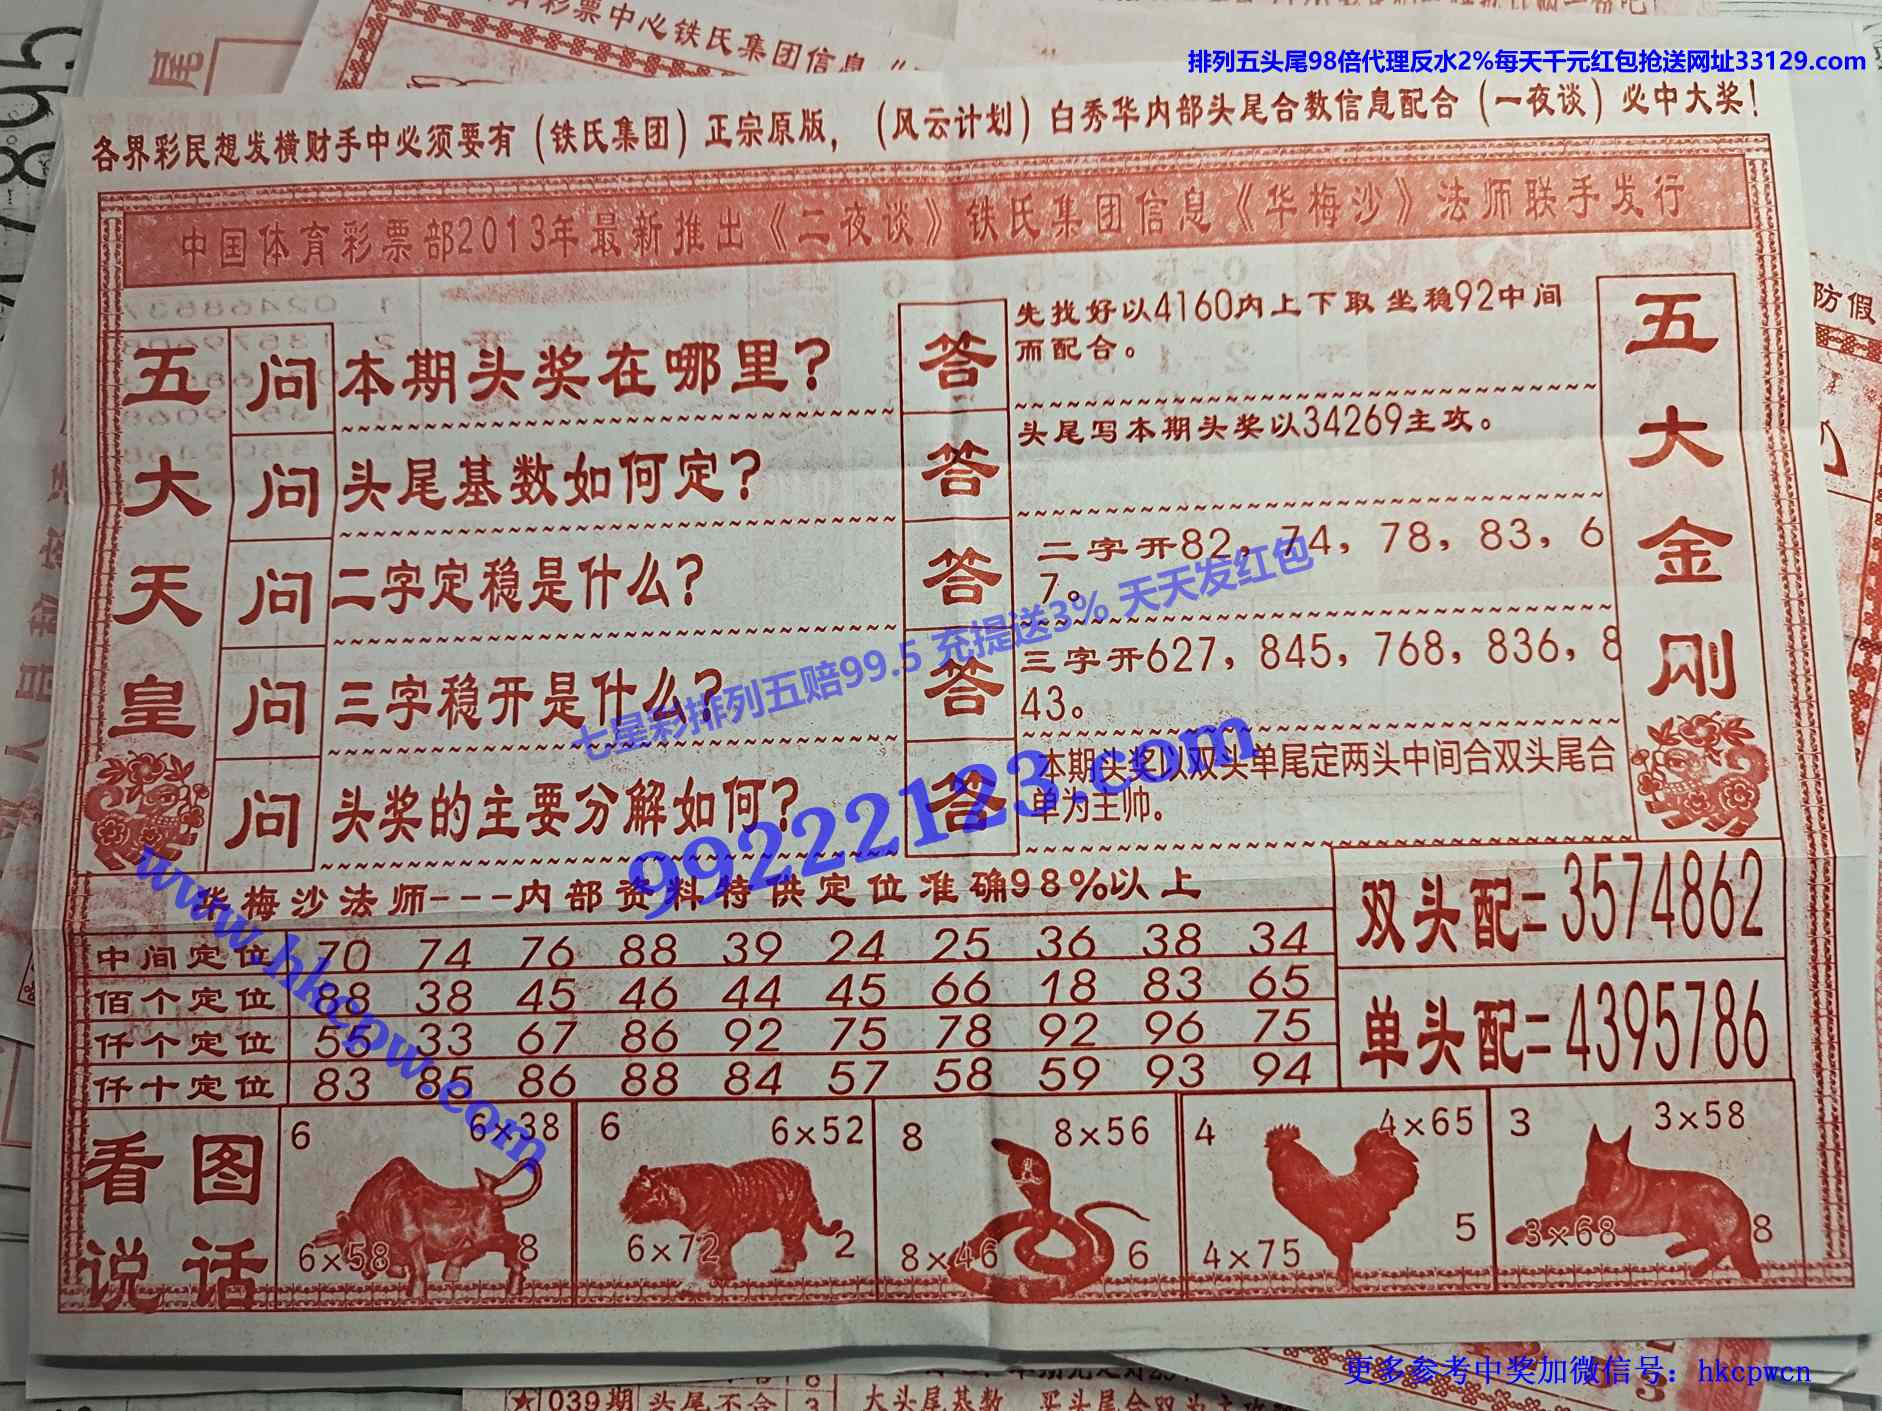 彩票中心铁氏集团信息《
排列五头尾98倍代理反水2%每天千元红包抢送网址33129.com
各界彩民想发横财手中必须要有（铁氏集团）正宗原版，（风云计划）白秀华内部头尾合数信息配合（一夜谈）必中大奖！
中国体育彩票部2013年最新推出《二夜谈》铁氏集团信息《华梅沙》法师联手发行
五大天皇
问 本期头奖在哪里？
答 先找好以4160内上下取坐稳92中间
而配合。
问 头尾基数如何定？
答 头尾写本期头奖以34269主攻。
问 二字定稳是什么？
答 二字开82，74，78，83，6
7。
问 三字稳开是什么？
答 三字开627，845，768，836，8
43。
问 头奖的主要分解如何？
答 本期头奖以双头单尾定两头中间合双头尾合
单为主帅。
五大金刚
七星彩排列五赔99.5 充提送3% 天天发红包
99222123.com
www.hkcpw.com
华梅沙法师---内部资料特供定位准确98%以上
中间定位 70 74 76 88 39 24 25 36 38 34
佰个定位 88 38 45 46 44 45 66 18 83 65
仟个定位 55 33 67 86 92 75 78 92 96 75
仟十定位 83 85 86 88 84 57 58 59 93 94
双头配=3574862
单头配=4395786
看图
说话
6 6×38
6×58 8
6 6×52
6×72 2
8 8×56
8×46 6
4 4×65
4×75 5
3 3×58
3×68 8
防假
更多参考中奖加微信号：hkcpwcn
039期 头尾不合
大头尾基数